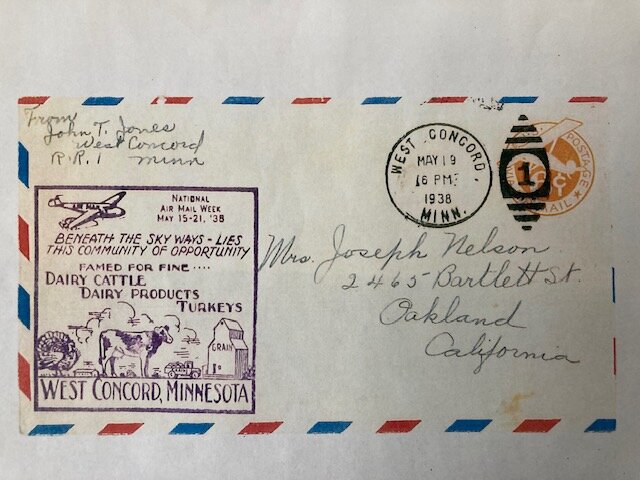 From
John T. Jones
West Concord
R.R. 1 Minn
WEST CONCORD,
MAY 19
6 PM
1938
MINN.
1
POSTAGE
MAIL
6¢
Mrs. Joseph Nelson
2465 Bartlett St.
Oakland
California
AIR MAIL
NATIONAL
AIR MAIL WEEK
MAY 15-21, '38
BENEATH THE SKY WAYS - LIES
THIS COMMUNITY OF OPPORTUNITY
FAMED FOR FINE ....
DAIRY CATTLE
DAIRY PRODUCTS
TURKEYS
GRAIN
WEST CONCORD, MINNESOTA